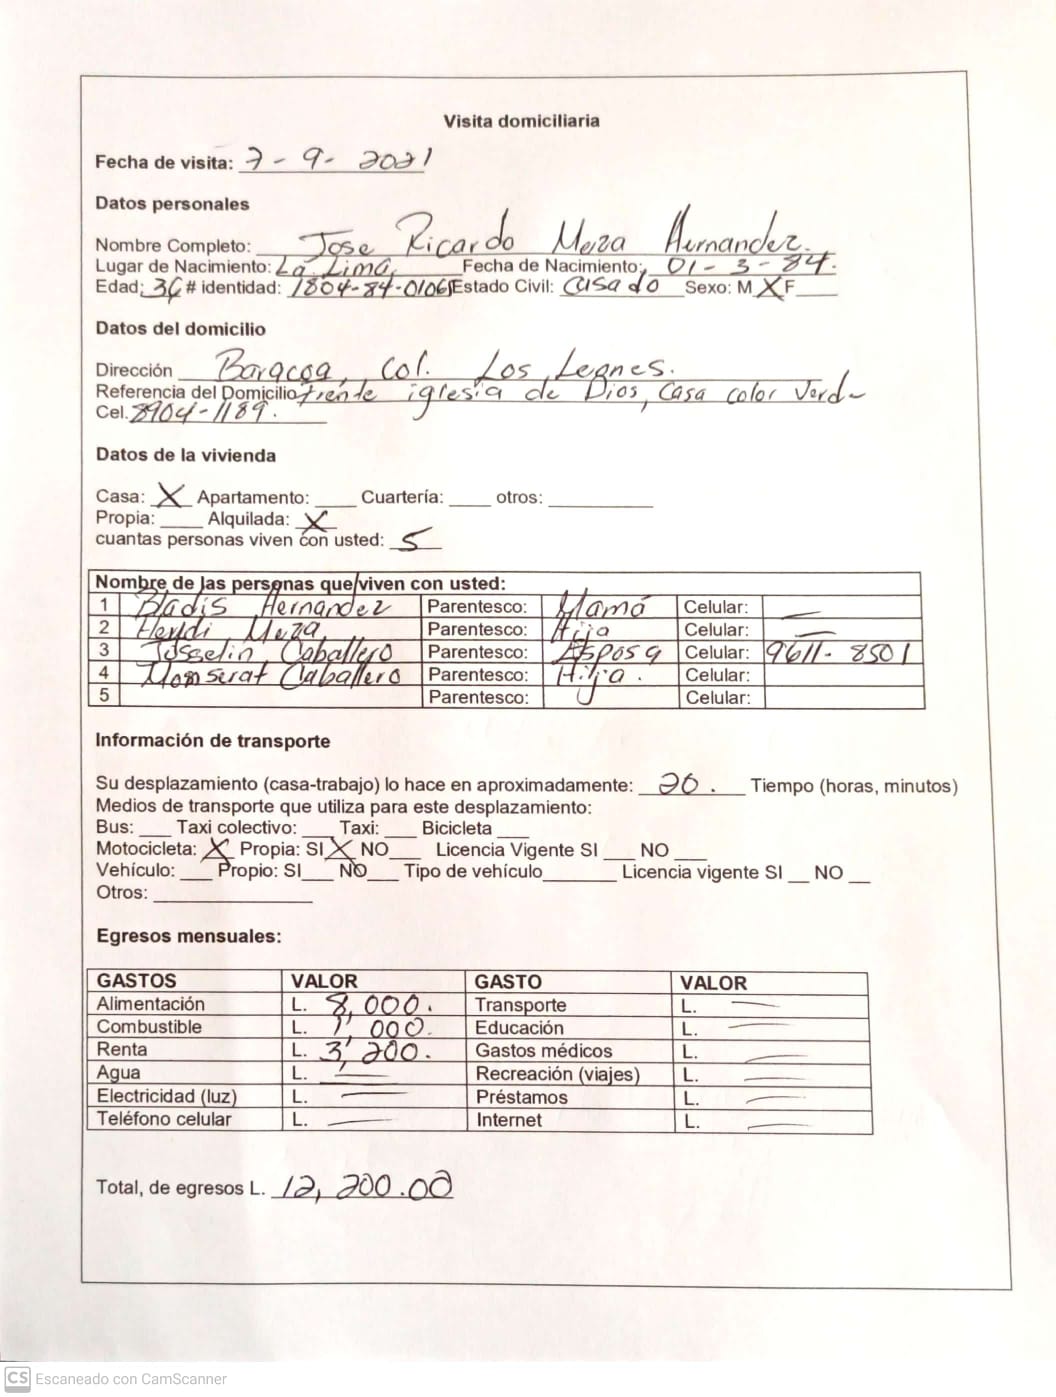 Visita domiciliaria
Fecha de visita: 7-9-2021
Datos personales
Nombre Completo: Jose Ricardo Meza Hernandez.
Lugar de Nacimiento: La Lima, Fecha de Nacimiento: 01-3-84.
Edad: 36 # identidad: 1804-84-01065 Estado Civil: Casado Sexo: M X F ____
Datos del domicilio
Dirección Baracoa, Col. Los Leones.
Referencia del Domicilio frente iglesia de Dios, Casa color Verde
Cel. 8904-1189.
Datos de la vivienda
Casa: X Apartamento: ____ Cuartería: ____ otros: ____
Propia: ____ Alquilada: X
cuantas personas viven con usted: 5
Nombre de las personas que viven con usted:
1 Bladis Hernandez Parentesco: Mamá Celular: —
2 Heydi Meza Parentesco: Hija Celular: —
3 Josselin Caballero Parentesco: Esposa Celular: 9611-8501
4 Monserat Caballero Parentesco: Hija. Celular:
5 Parentesco: Celular:
Información de transporte
Su desplazamiento (casa-trabajo) lo hace en aproximadamente: 20. Tiempo (horas, minutos)
Medios de transporte que utiliza para este desplazamiento:
Bus: ___ Taxi colectivo: ___ Taxi: ___ Bicicleta ___
Motocicleta: X Propia: SI X NO ___ Licencia Vigente SI ___ NO ___
Vehículo: ___ Propio: SI ___ NO ___ Tipo de vehículo ____ Licencia vigente SI __ NO __
Otros: ____
Egresos mensuales:
GASTOS VALOR GASTO VALOR
Alimentación L. 8,000. Transporte L. —
Combustible L. 1,000. Educación L. —
Renta L. 3,200. Gastos médicos L. —
Agua L. — Recreación (viajes) L. —
Electricidad (luz) L. — Préstamos L. —
Teléfono celular L. — Internet L. —
Total, de egresos L. 12,200.00
CS Escaneado con CamScanner